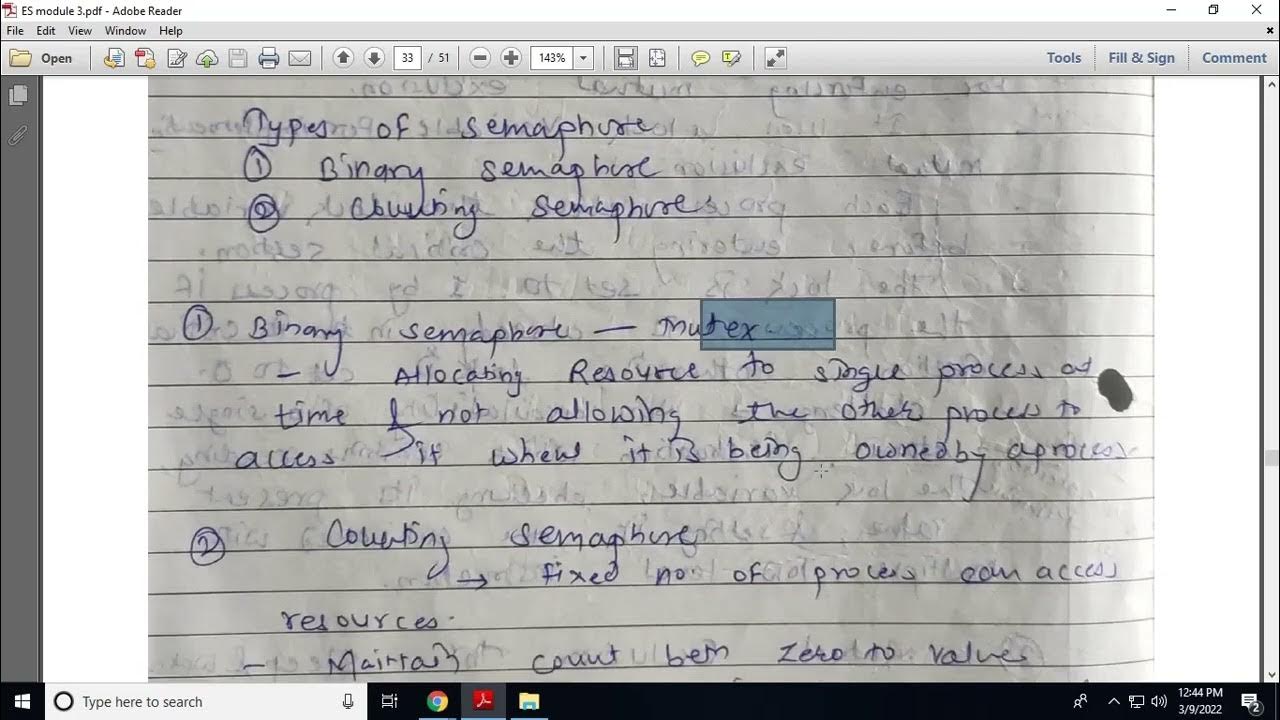 ES module 3.pdf - Adobe Reader
File Edit View Window Help
Open 33 / 51 143% Tools Fill & Sign Comment
Types of semaphore
① Binary semaphore
② Counting semaphores
① Binary semaphore — mutex
- Allocating Resource to single process at
time & not allowing the other process to
access it when it is being owned by a process
② Counting semaphore
→ fixed no of process can access
resources.
- Maintain count betn zero to values
Type here to search
12:44 PM
3/9/2022
2